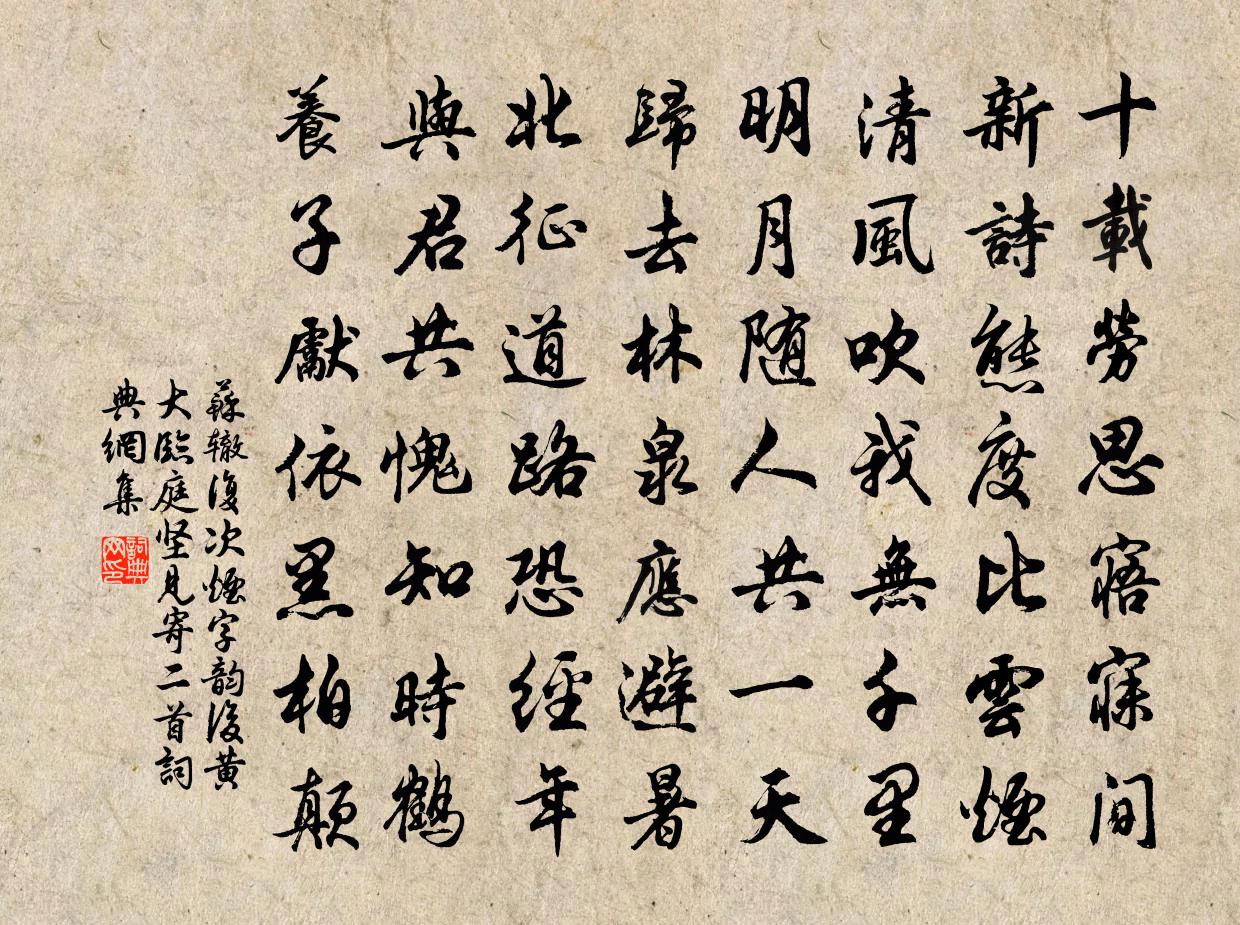 十載勞思寤寐間
新詩態度比雲煙
清風吹我無千里
明月随人共一天
歸去林泉應避暑
北征道路恐經年
與君共愧知時鶴
養子獻依黑柏顛
蘇辙復次煙字韵復黄
大臨庭坚見寄二首詞
典網集
詞典
网印